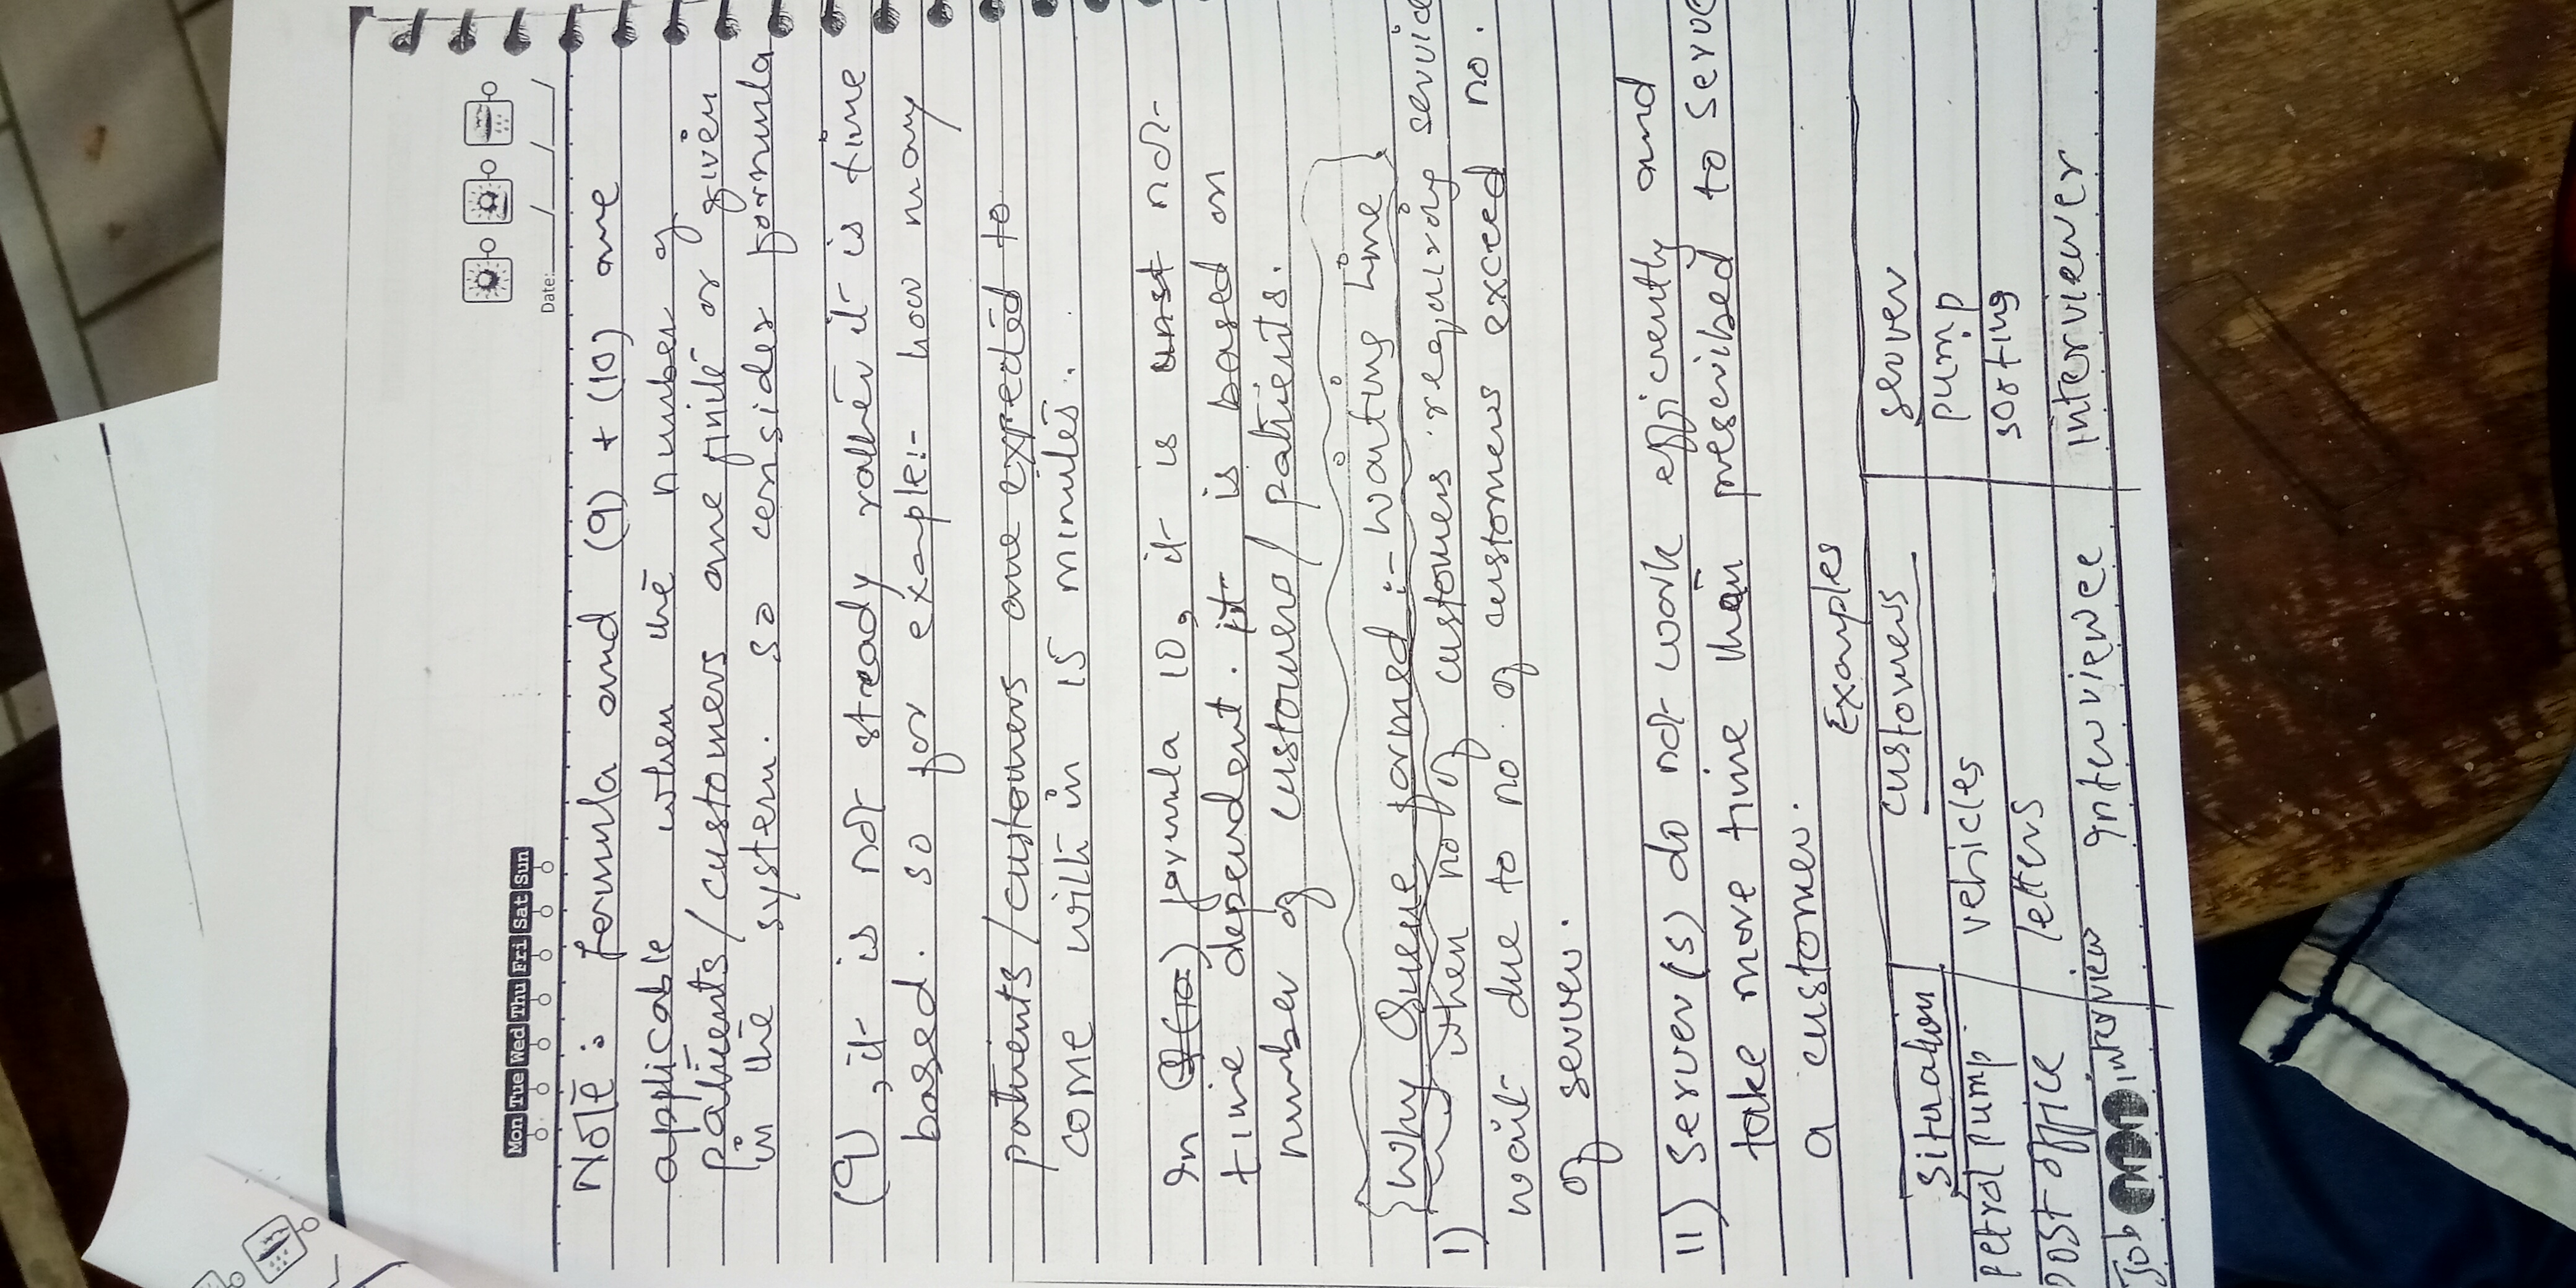 Mon Tue Wed Thu Fri Sat Sun
Date: / / /
Note: formula and (9) + (10) are
applicable when the number of
patients/customers are finite or given
in the system. so consider formula
(9), it is not steady rather it is time
based. so for example:- how many
patients/customers are expected to
come with in 15 minutes.
In formula 10, it is not
time dependent. it is based on
number of customers/patients.
Why Queue formed :- waiting Line
I) when no of customers requiring servic
wait due to no. of customers exceed no.
of server.
II) server(s) do not work efficiently and
take more time than prescribed to serve
a customer.
Examples
situation customers server
petrol pump vehicles pump
post office letters sorting
Job interview Interviewee interviewer